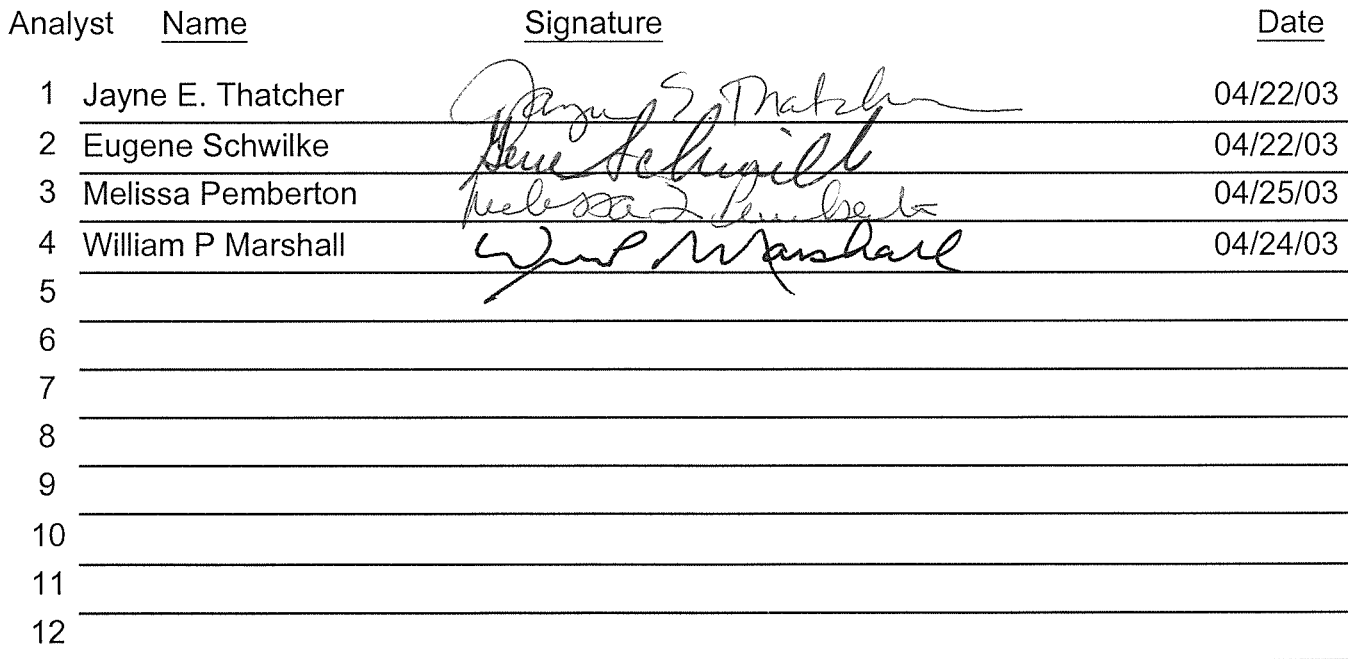 Analyst Name Signature Date
1 Jayne E. Thatcher Jayne E Thatcher 04/22/03
2 Eugene Schwilke Gene Schwilke 04/22/03
3 Melissa Pemberton Melissa L Pemberton 04/25/03
4 William P Marshall Wm P Marshall 04/24/03
5
6
7
8
9
10
11
12